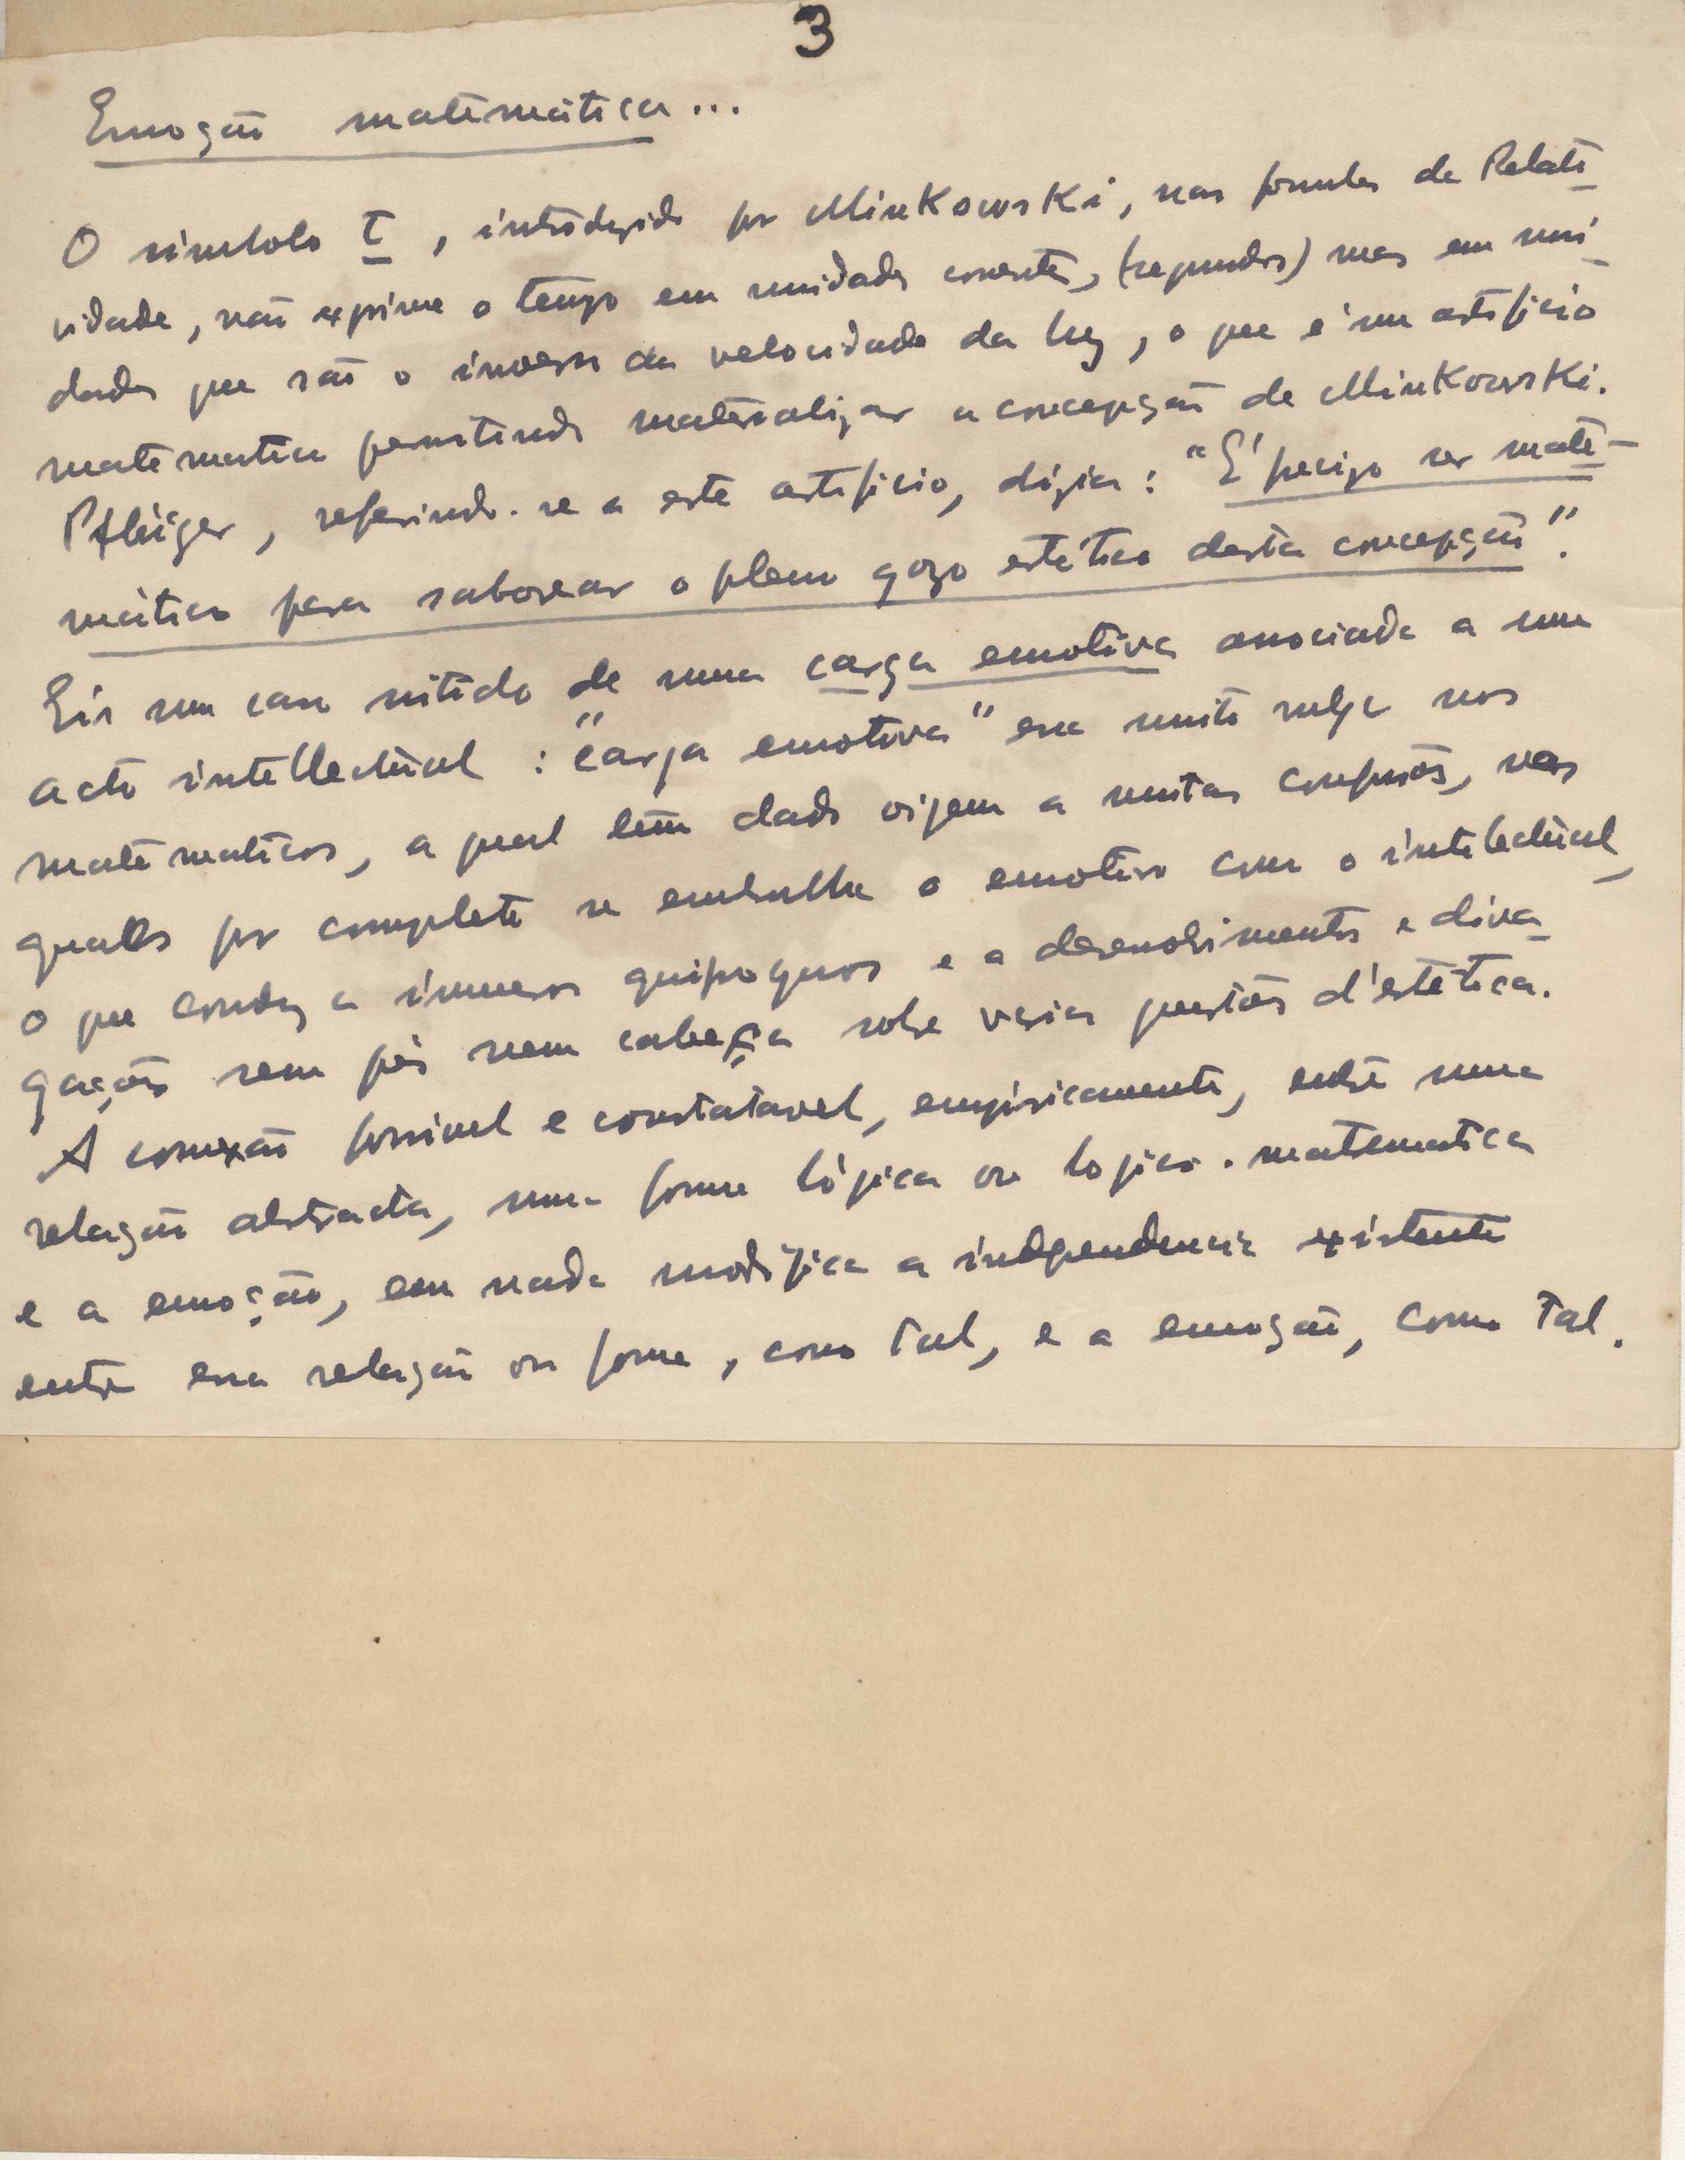 3
Emoção matemática...
O simbolo τ, introduzido por Minkowski, nas formulas da Relati
vidade, não exprime o tempo em unidades correntes, (segundos) mas em uni
dades que são o inverso da velocidade da luz, o que é um artificio
matematico permitindo materializar a concepção de Minkowski.
Pflüger, referindo-se a este artificio, dizia: "É preciso ser mate-
mático para saborear o pleno gozo estético desta concepção".
Eis um caso nitido de uma carga emotiva associada a um
acto intellectual: "carga emotiva" essa muito vulgar nos
matematicos, a qual tem dado origem a muitas confusões, nas
quaes por completo se embrulha o emotivo com o intelectual,
o que conduz a inumeros quiproquos e a desenvolvimentos e diva
gações sem pés nem cabeça sobre varias questões d'estética.
A conexão possivel e constatavel, empiricamente, entre uma
relação abstracta, uma forma lógica ou logico-matematica
e a emoção, em nada modifica a independencia existente
entre essa relação ou forma, como tal, e a emoção, como tal.